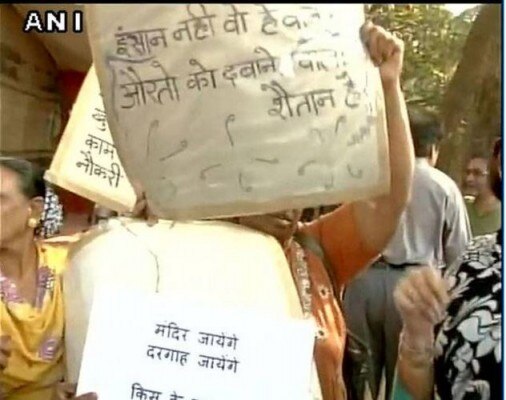 ANI
इंसान नही वो है
औरतो को दबाने
शैतान है
काम
नौकरी
मंदिर जायेंगे
दरगाह जायेंगे
किस